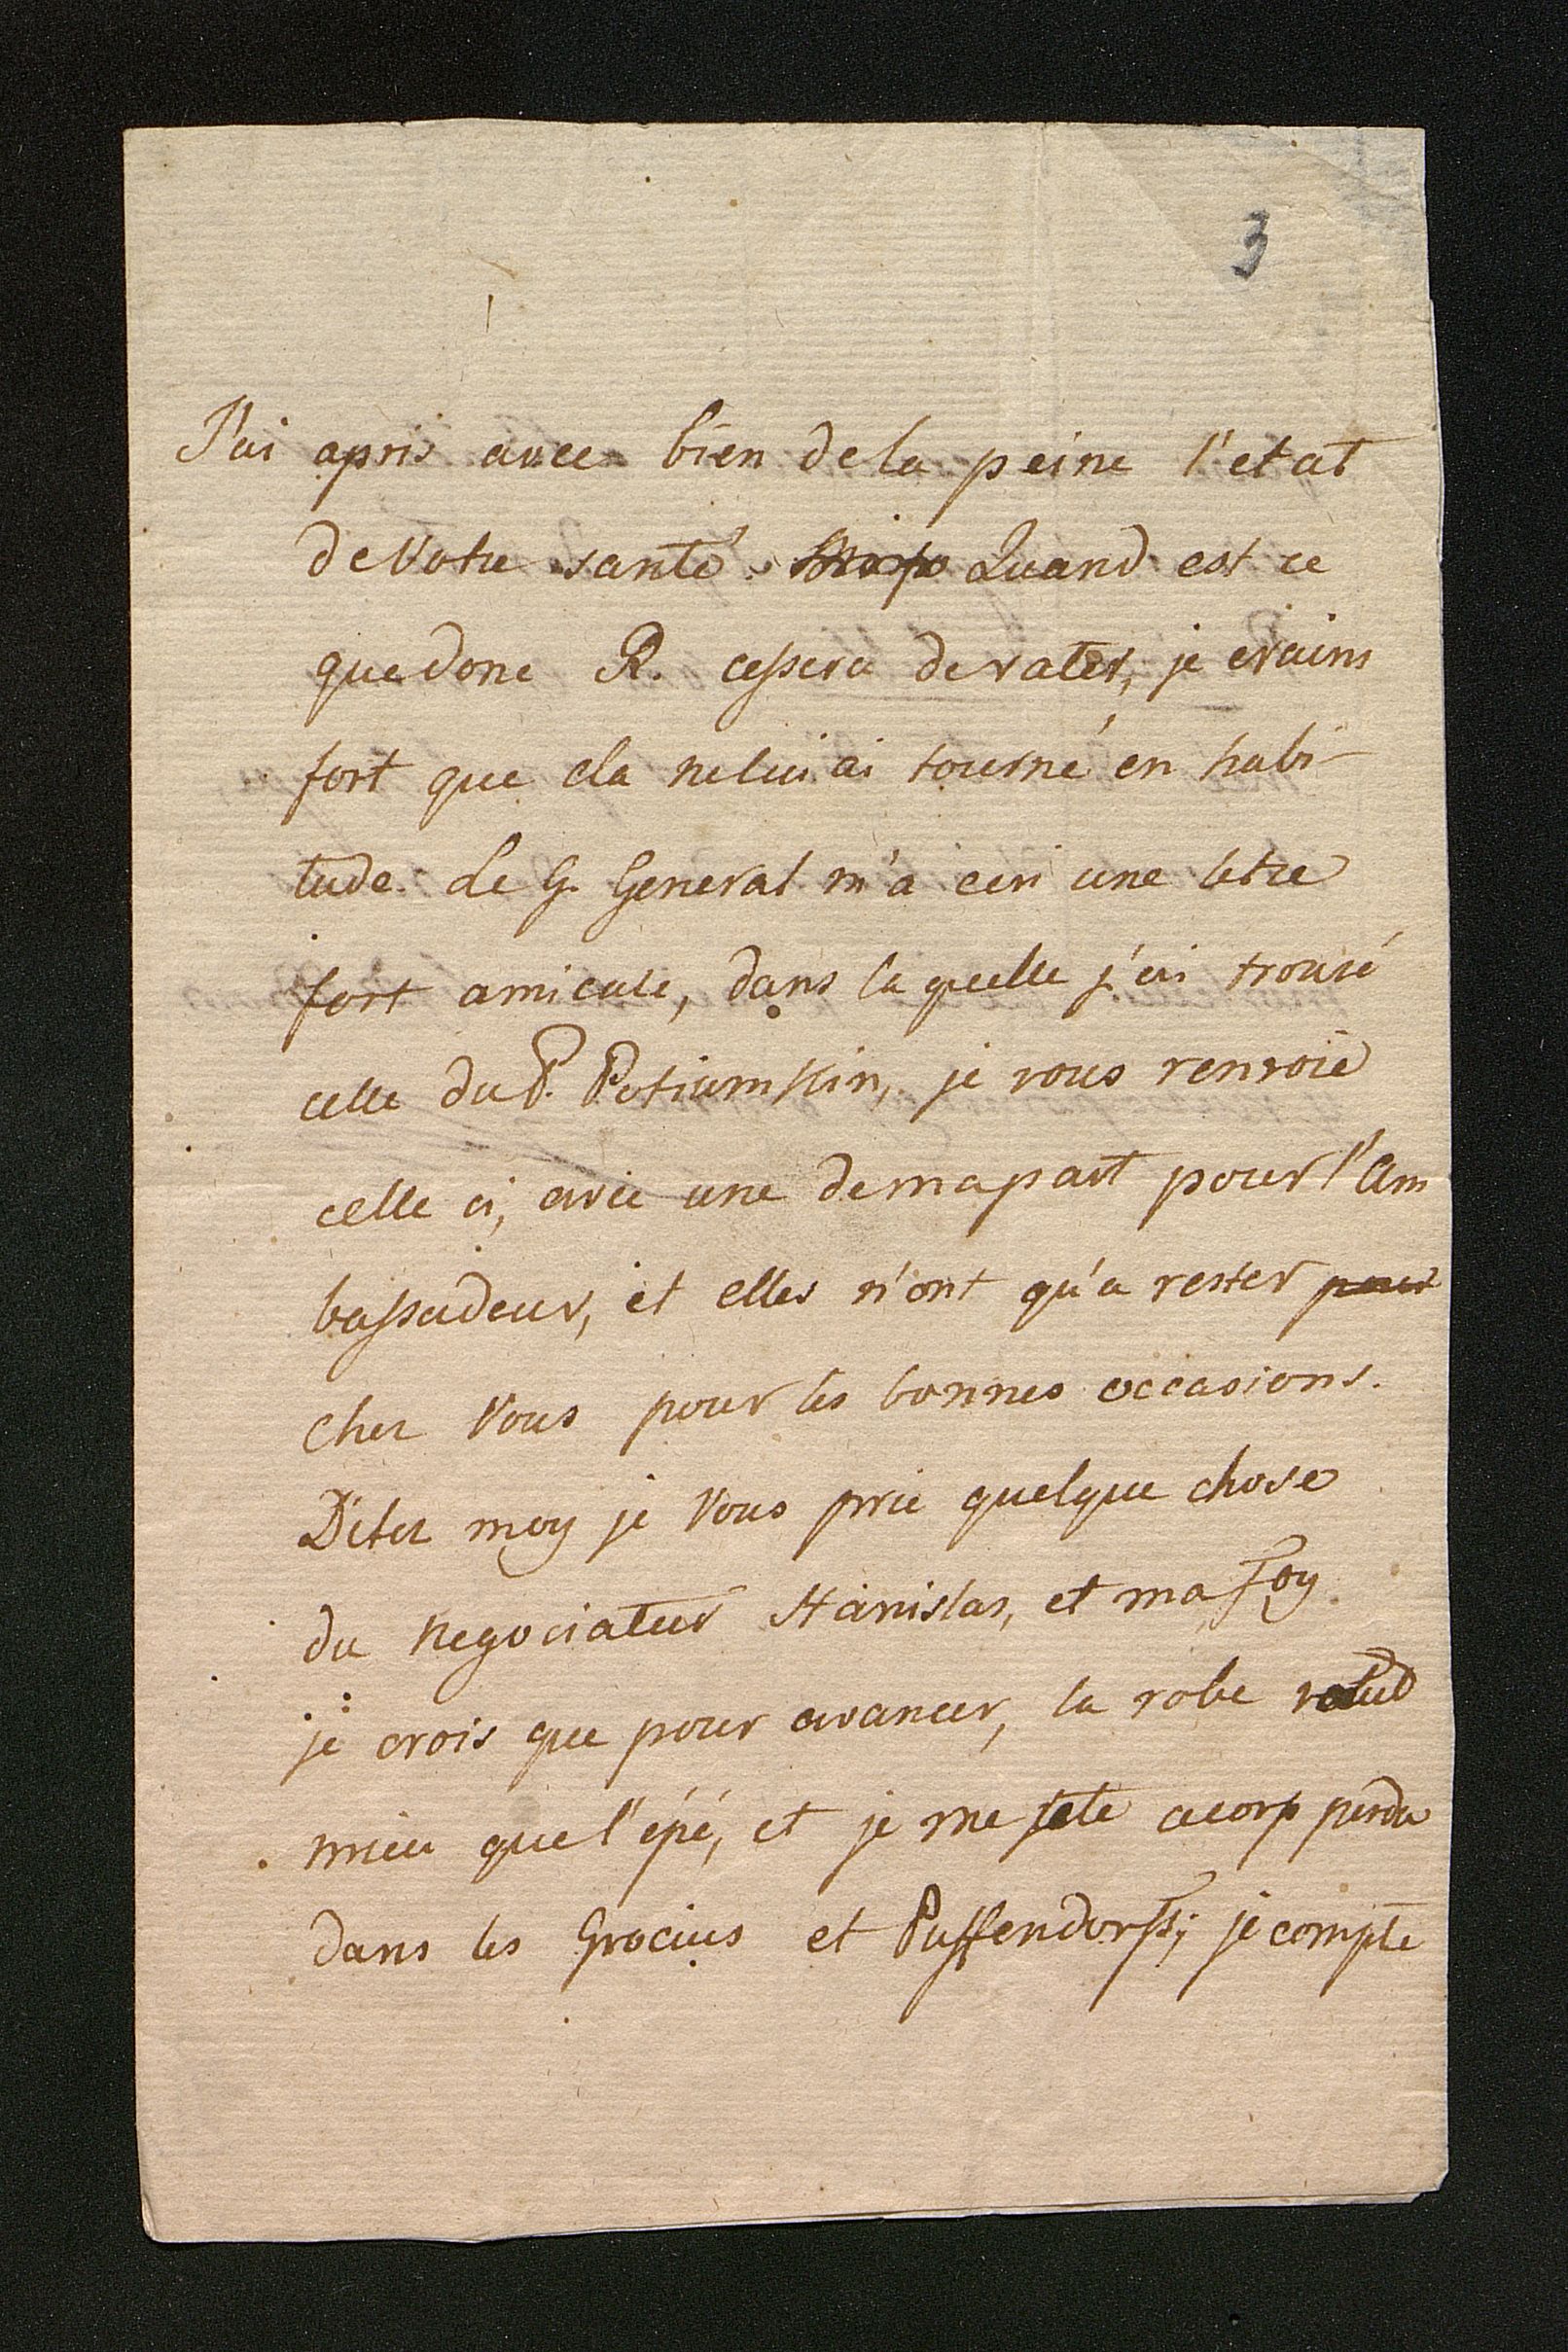 3
J'ai apris avec bien dela peine l'etat
de Votre santé. Quand est ce
que donc R. cessera de rater, je crains
fort que cla nelui ai tourné en habi-
tude. Le G. General m'a ecri une letre
fort amicale, dans la quelle j'ai trouvé
celle du P. Potiumkin, je vous renvoie
celle ci, avec une demapart pour l'Am
bassadeur, et elles n'ont qu'a rester pour
chez Vous pour les bonnes occasions.
Ditez moy je Vous prie quelque chose
du Negociateur Stanislas, et ma foy
je crois que pour avancer, la robe valud
mieu que l'épé, et je me jete acorp perdu
dans les Grocius et Puffendorff; je compte